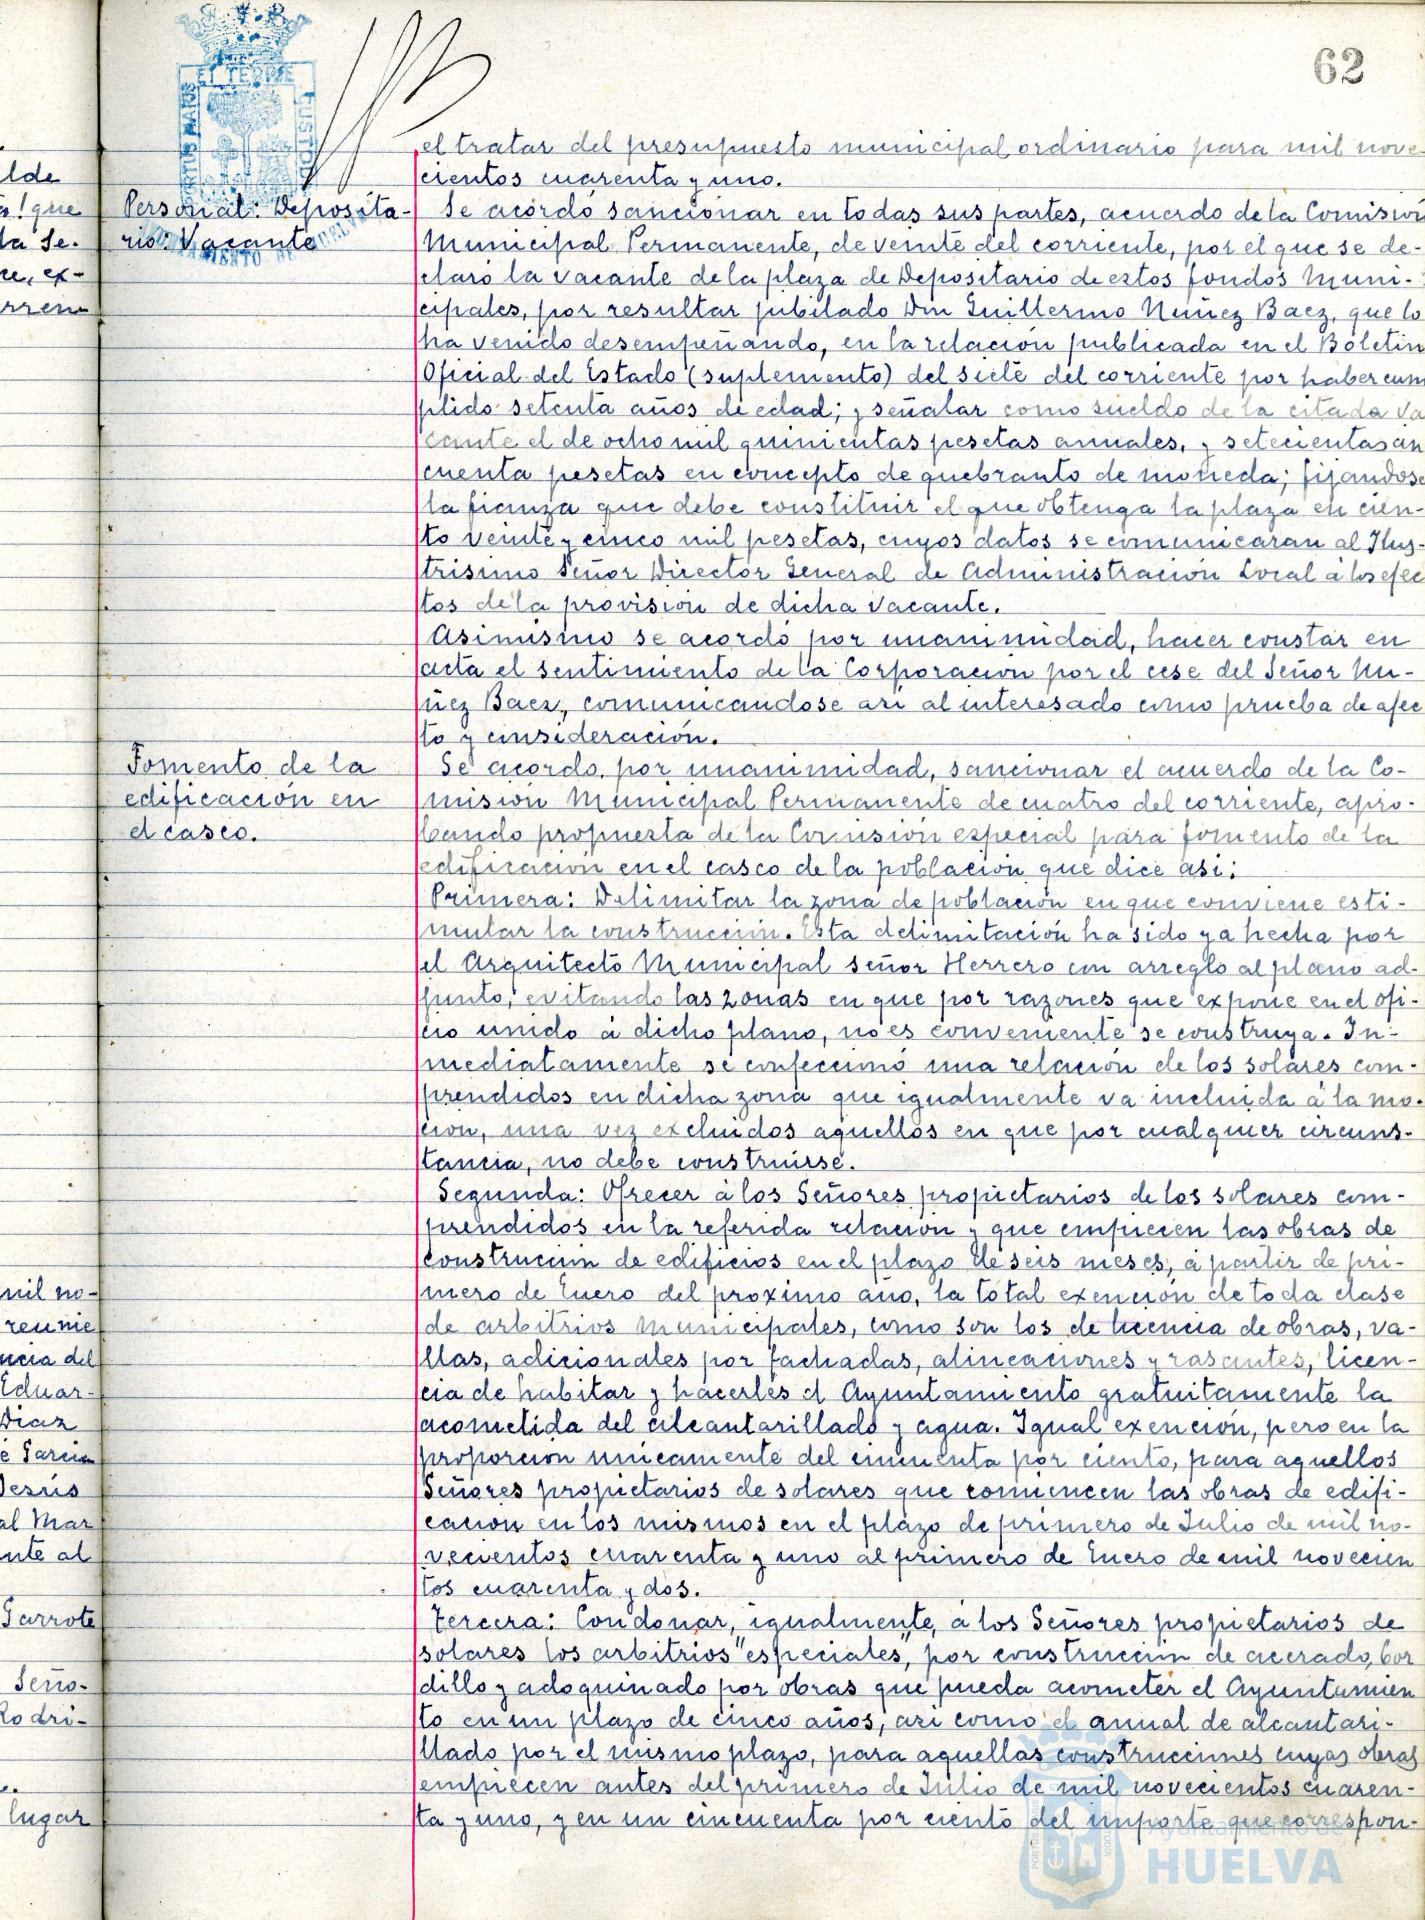 62
el tratar del presupuesto municipal ordinario para mil nove-
cientos cuarenta y uno.
Personal: Deposita-
rio: Vacante
Se acordó sancionar en todas sus partes, acuerdo de la Comisión
Municipal Permanente, de veinte del corriente, por el que se de-
claró la vacante de la plaza de Depositario de estos fondos Muni-
cipales, por resultar jubilado Don Guillermo Nuñez Baez, que lo
ha venido desempeñando, en la relación publicada en el Boletin
Oficial del Estado (suplemento) del siete del corriente por haber cum
plido setenta años de edad; y señalar como sueldo de la citada va
cante el de ocho mil quinientas pesetas anuales, y setecientas cin
cuenta pesetas en concepto de quebranto de moneda; fijandose
la fianza que debe constituir el que obtenga la plaza en cien-
to veinte y cinco mil pesetas, cuyos datos se comunicaran al Ilus-
trisimo Señor Director General de Administración Local á los efec
tos de la provisión de dicha vacante.
Asimismo se acordó por unanimidad, hacer constar en
acta el sentimiento de la Corporación por el cese del Señor Nu-
ñez Baez, comunicandose asi al interesado como prueba de afec
to y consideración.
Fomento de la
edificación en
el casco.
Se acordo, por unanimidad, sancionar el acuerdo de la Co-
misión Municipal Permanente de cuatro del corriente, apro-
bando propuesta de la Comisión especial para fomento de la
edificación en el casco de la población que dice asi:
Primera: Delimitar la zona de población en que conviene esti-
mular la construcción. Esta delimitación ha sido ya hecha por
el Arquitecto Municipal señor Herrero con arreglo al plano ad-
junto, evitando las zonas en que por razones que expone en el ofi-
cio unido á dicho plano, no es conveniente se construya. In-
mediatamente se confeccionó una relación de los solares com-
prendidos en dicha zona que igualmente va incluida á la mo-
cion, una vez excluidos aquellos en que por cualquier circuns-
tancia, no debe construirse.
Segunda: Ofrecer á los Señores propietarios de los solares com-
prendidos en la referida relación y que empiecen las obras de
construcción de edificios en el plazo de seis meses, á partir de pri-
mero de Enero del proximo año, la total exención de toda clase
de arbitrios municipales, como son los de licencia de obras, va-
llas, adicionales por fachadas, alineaciones y rasantes, licen-
cia de habitar y hacerles el Ayuntamiento gratuitamente la
acometida del alcantarillado y agua. Igual exención, pero en la
proporcion unicamente del cincuenta por ciento, para aquellos
Señores propietarios de solares que comiencen las obras de edifi-
cación en los mismos en el plazo de primero de Julio de mil no-
vecientos cuarenta y uno al primero de Enero de mil novecien
tos cuarenta y dos.
Tercera: Condonar, igualmente, á los Señores propietarios de
solares los arbitrios "especiales", por construcción de acerado, bor
dillo y adoquinado por obras que pueda acometer el Ayuntamien
to en un plazo de cinco años, asi como el anual de alcantari-
llado por el mismo plazo, para aquellas construcciones cuyas obras
empiecen antes del primero de Julio de mil novecientos cuaren-
ta y uno, y en un cincuenta por ciento del importe que correspon-
lde
que
la Se-
ex-
rren-
mil no-
reunie
ncia del
Eduar-
Diaz
Garcia
Jesús
al Mar
nte al
Garrote
Seño-
Rodri-
lugar
Ayuntamiento de
HUELVA